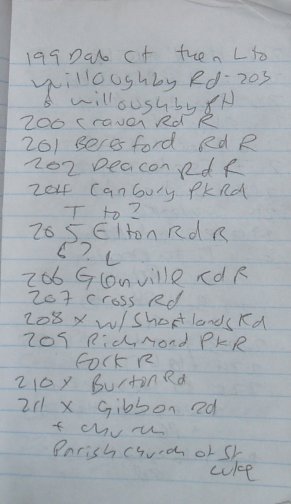 199 Dab Ct then L to
Willoughby Rd - 203
& Willoughby PH
200 Craven Rd R
201 Beresford Rd R
202 Deacon Rd R
204 Canbury Pk Rd
T to ?
205 Elton Rd R
6? L
206 Glonville Rd R
207 Cross Rd
208 x w/ Shortlands Rd
209 Richmond Pk R
Fork R
210 x Burton Rd
211 x Gibbon rd
+ church
Parish church of St
Luke